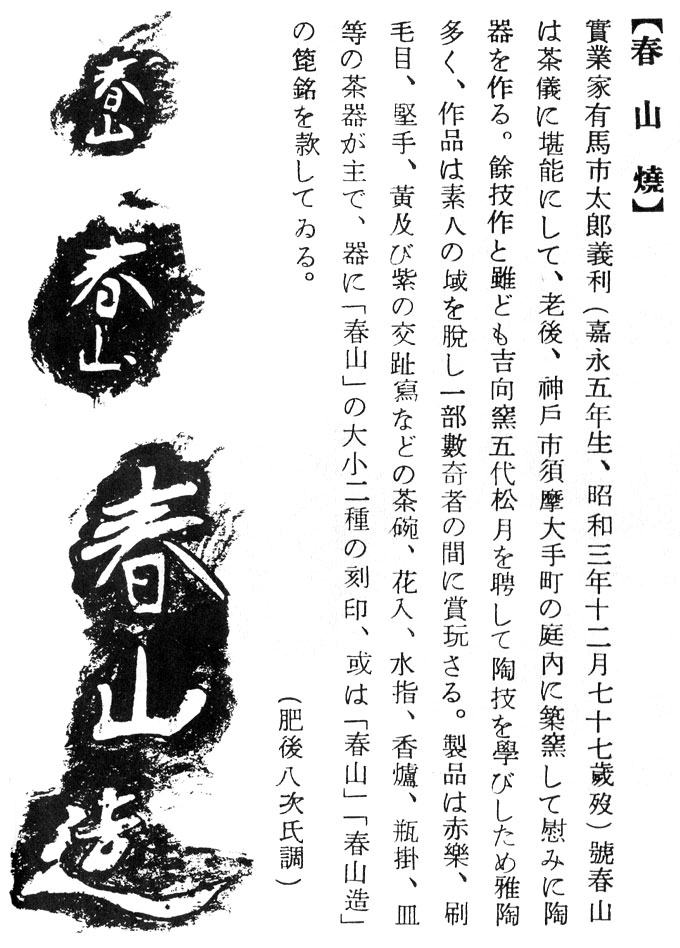 【春山燒】
實業家有馬市太郎義利(嘉永五年生、昭和三年十二月七十七歲歿)號春山
は茶儀に堪能にして、老後、神戶市須摩大手町の庭內に築窯して慰みに陶
器を作る。餘技作と雖ども吉向窯五代松月を聘して陶技を學びしため雅陶
多く、作品は素人の域を脫し一部數奇者の間に賞玩さる。製品は赤樂、刷
毛目、堅手、黃及び紫の交趾寫などの茶碗、花入、水指、香爐、瓶掛、皿
等の茶器が主で、器に「春山」の大小二種の刻印、或は「春山」「春山造」
の箆銘を款してゐる。
(肥後八次氏調)
春山
春山
春山造